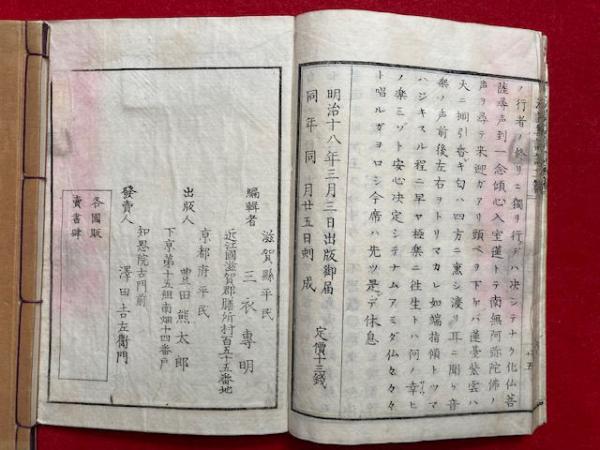 ノ行者ノ終リニ獨リ行デハ決シテナク化仏菩
薩尋声到一念傾心入宝蓮トテ南無阿弥陀佛ノ
声ヲ尋テ来迎ガアリ頭ベヲ下レバ蓮臺紫雲ハ
大ニ棚引香キ匂ハ四方ニ薫シ渡リ耳ニ聞ク音
樂ノ声前後左右ヲトリマカレ如端指傾トツマ
ハジキスル程ニ早ヤ極樂ニ往生トハ何ノ幸ヒ
ノ樂ミゾト安心決定シテナムアミダ仏々々々
ト唱ルガヨロシ今席ハ先ツ是デ休息
明治十八年三月三日出版御届
同年同月廿五日刻成
定價十三錢
滋賀縣平民
編輯者 三衣專明
近江國滋賀郡膳所村百五十五番地
京都府平民
出版人 豊田熊太郎
下京第十五組南畑十四番戸
知恩院古門前
發賣人 澤田吉左衞門
各國販
賣書肆